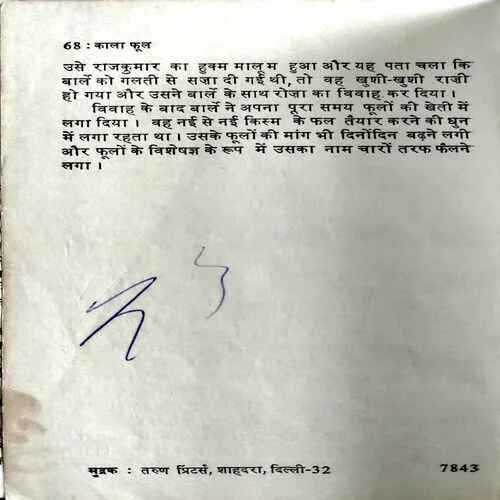 68 : काला फूल
उसे राजकुमार का हुक्म मालूम हुआ और यह पता चला कि
बार्ले को गलती से सज़ा दी गई थी, तो वह खुशी-खुशी राज़ी
हो गया और उसने बार्ले के साथ रोज़ा का विवाह कर दिया।
विवाह के बाद बार्ले ने अपना पूरा समय फूलों की खेती में
लगा दिया। वह नई से नई किस्म के फल तैयार करने की धुन
में लगा रहता था। उसके फूलों की मांग भी दिनोंदिन बढ़ने लगी
और फूलों के विशेषज्ञ के रूप में उसका नाम चारों तरफ फैलने
लगा।
मुद्रक : तरुण प्रिंटर्स, शाहदरा, दिल्ली-32 7843